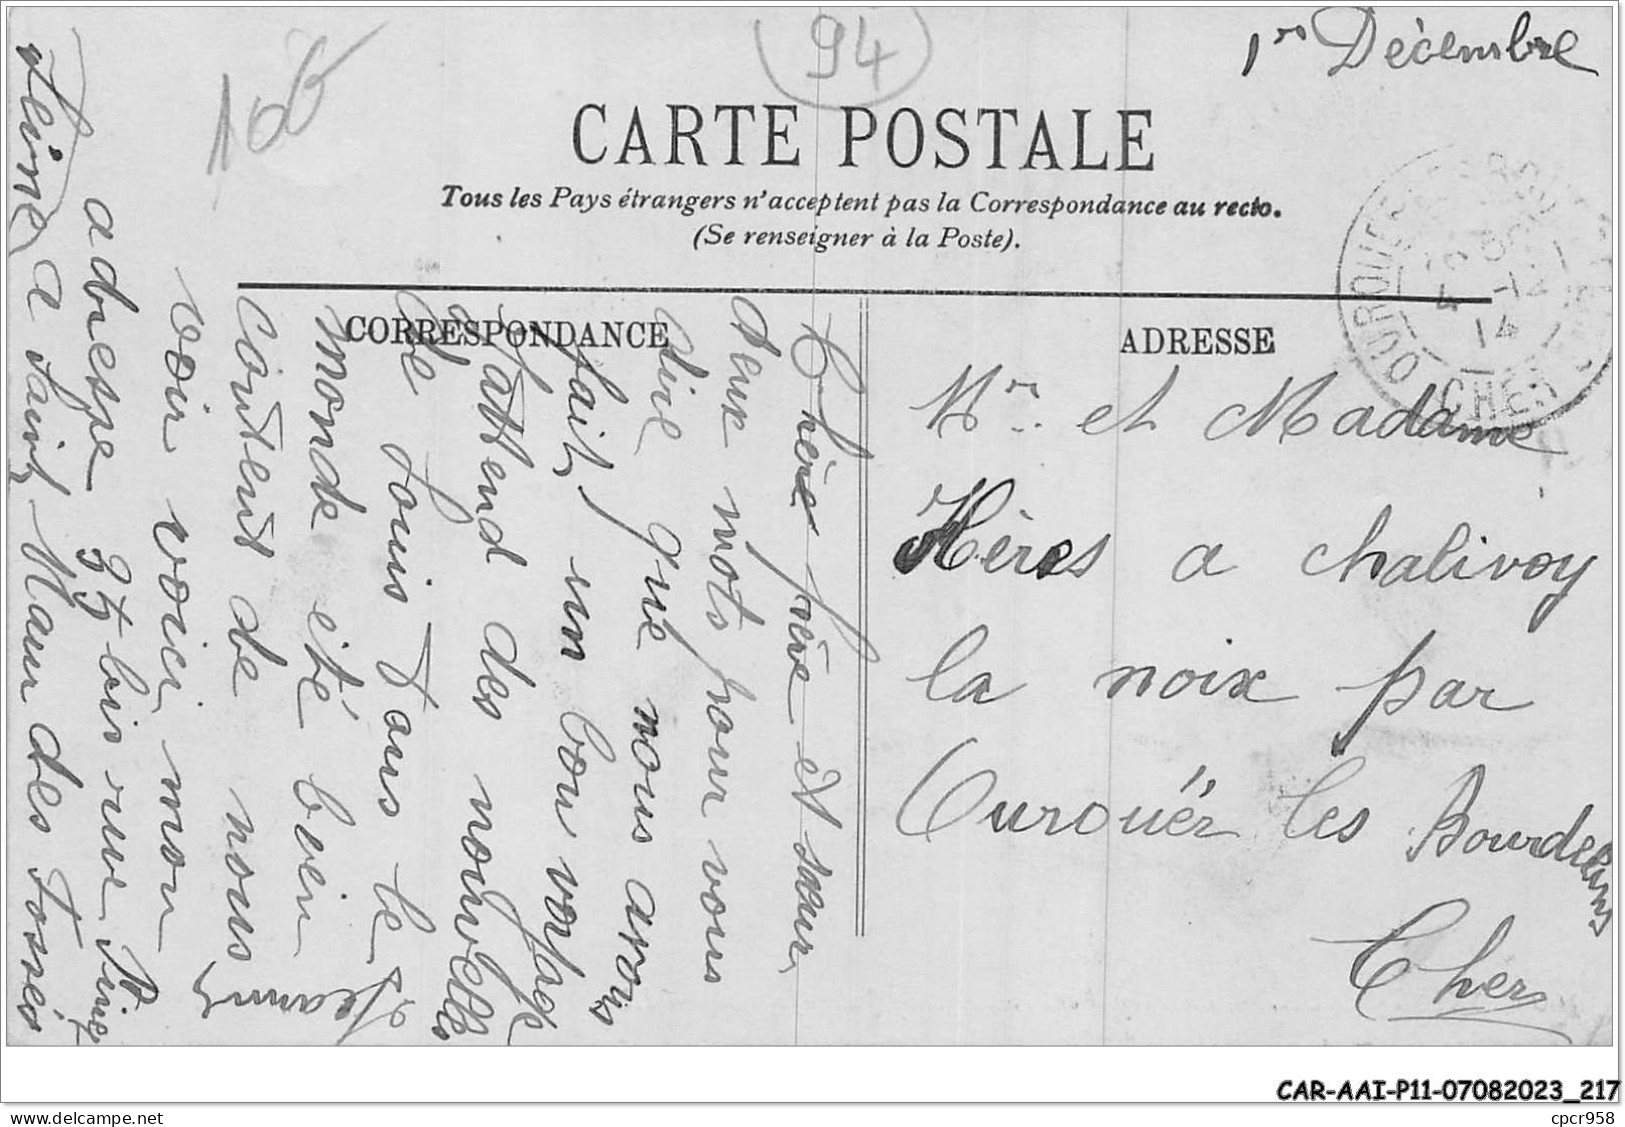 106
94
1er Décembre
CARTE POSTALE
Tous les Pays étrangers n'acceptent pas la Correspondance au recto.
(Se renseigner à la Poste).
CORRESPONDANCE
Chère frère et sœur,
deux mots pour vous
dire que nous avons
fait un bon voyage
J'attend des nouvelles
de Louis Tous le
monde été bien
contend de nous
voir voici mon
adresse 35 bis rue
a Saint Maur des Fossés
Jeanne
ADRESSE
Mr et Madame
Hères a Chalivoy
la noix par
Ourouër les Bourdelins
Cher
OUROUER
4
14
CHER
CAR-AAI-P11-07082023_217
cpcr958